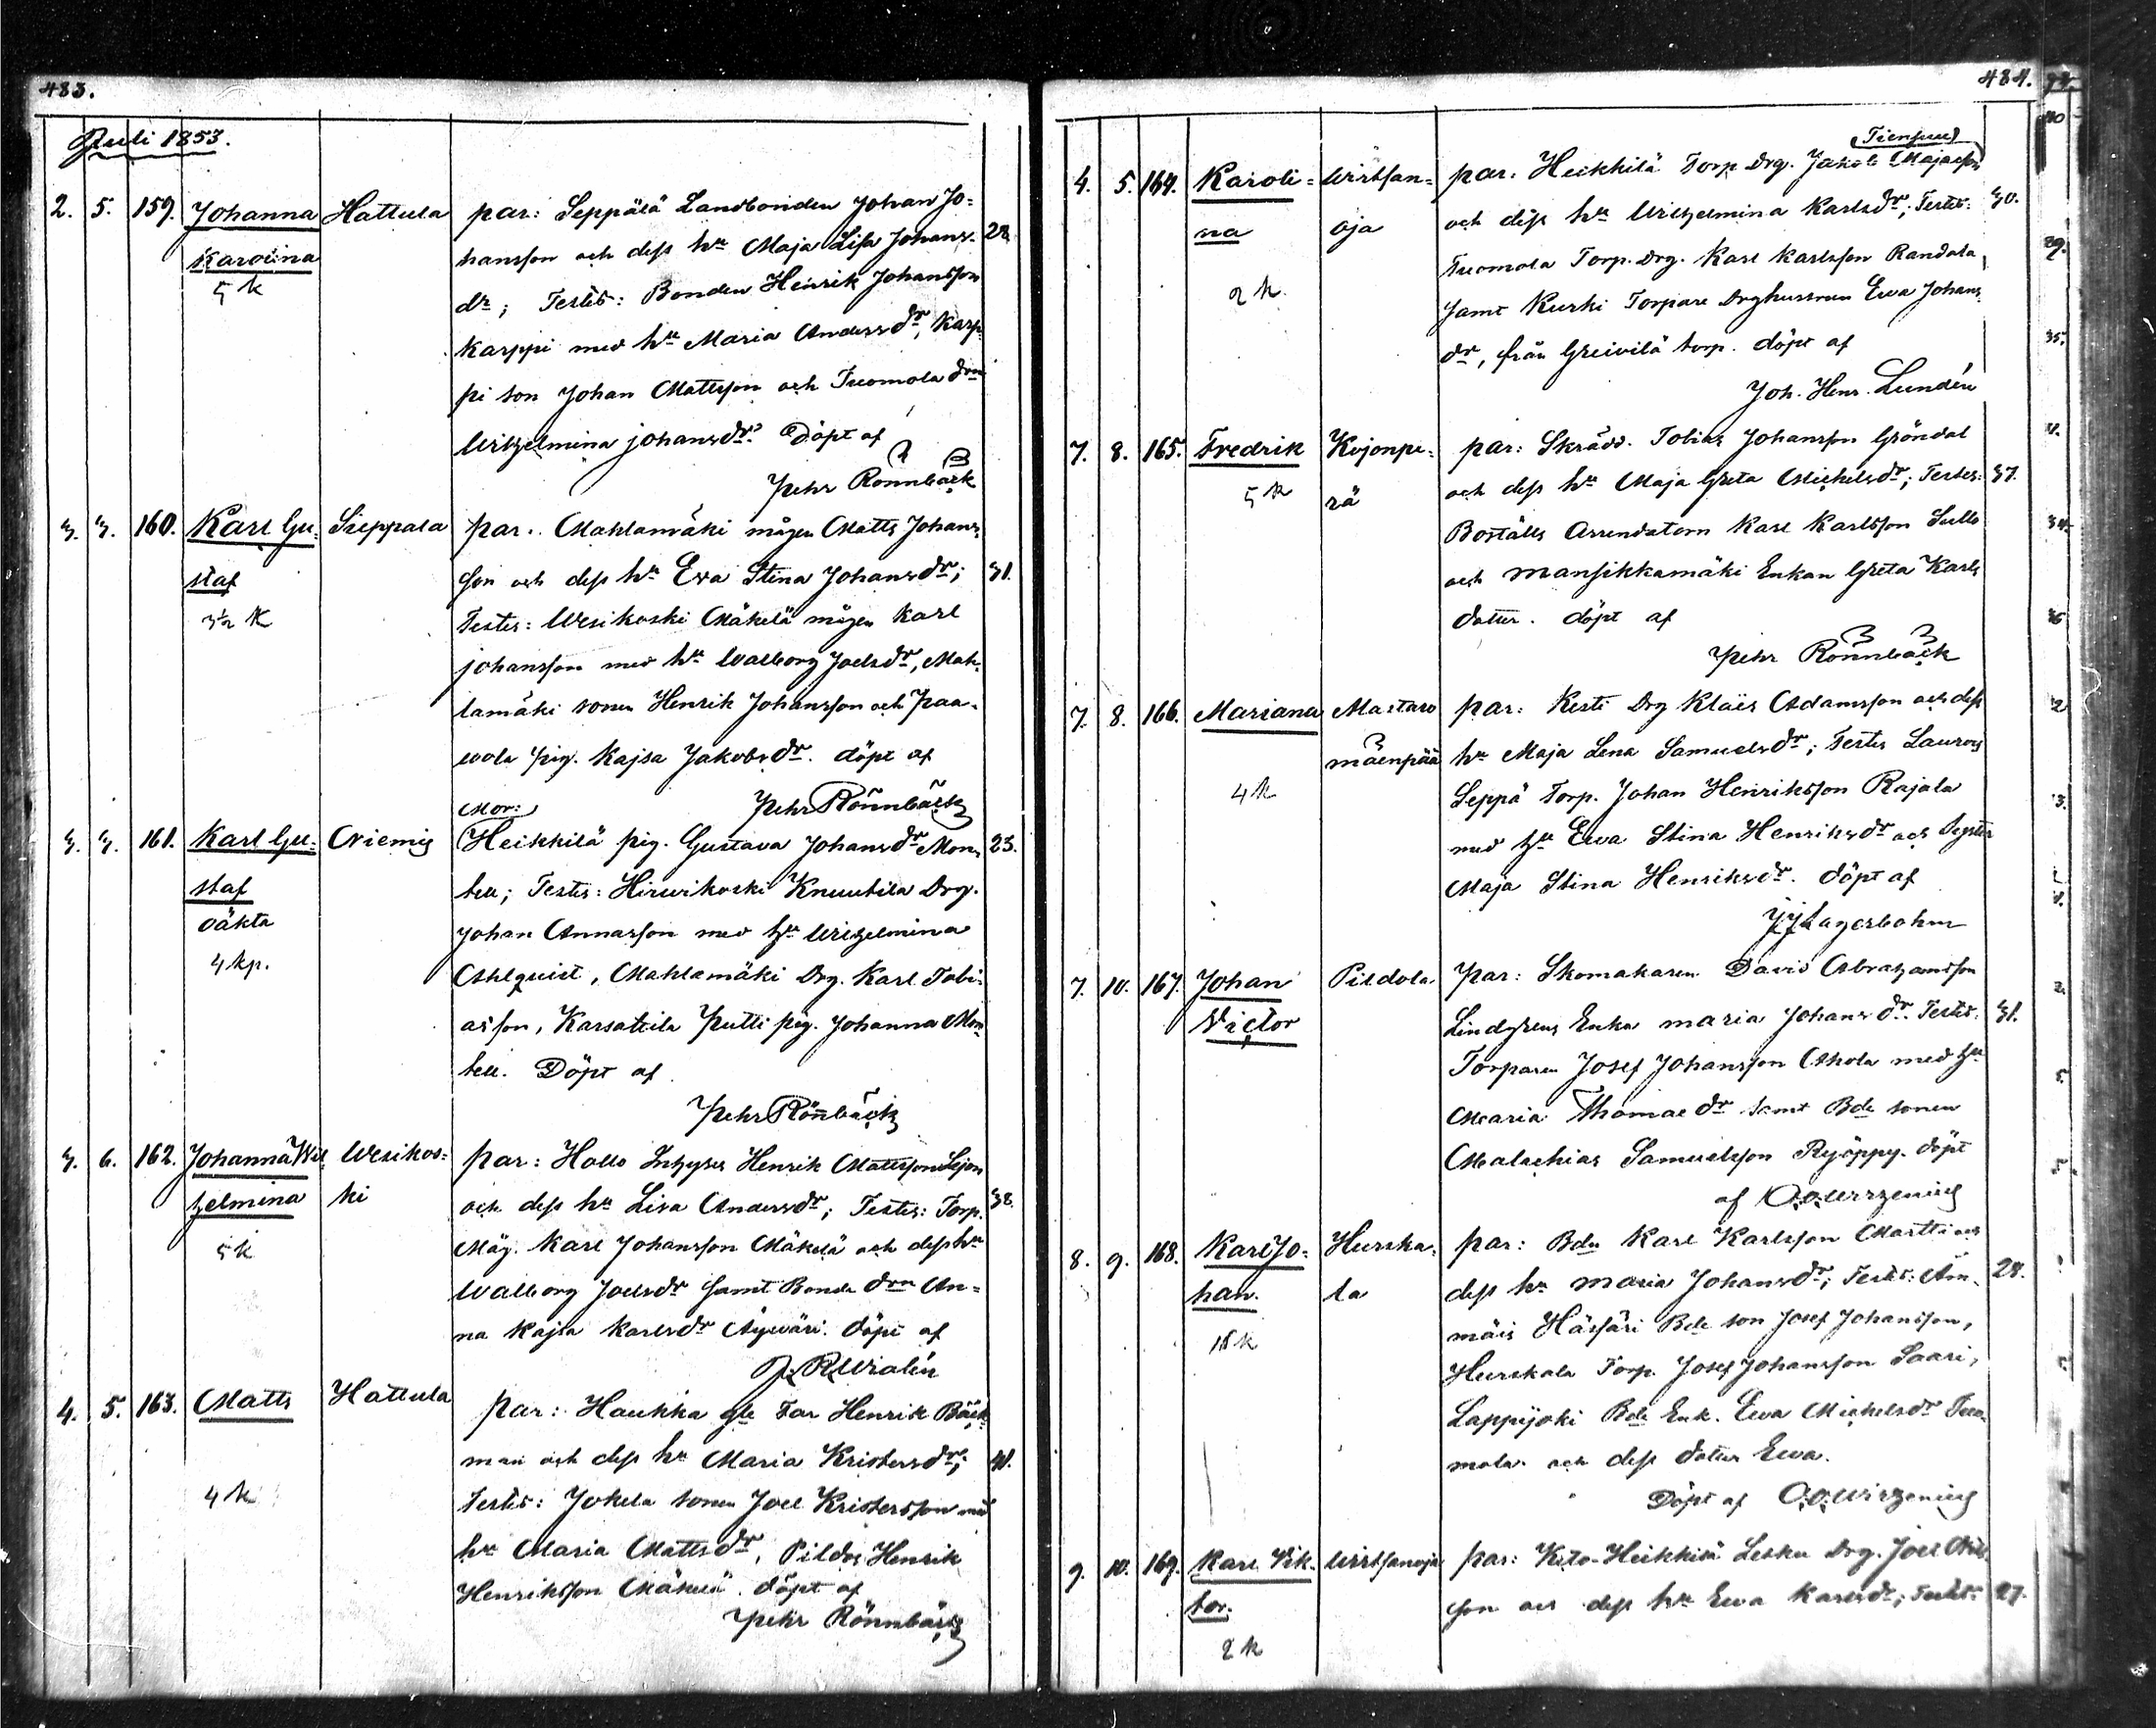 483.
Juli 1853.
2. 5. 159. Johanna Hattula par: Seppälä Landbonden Johan Jo=
Karolina hansson och dess hu Maja Lisa Johans- 28
5 k dr; Testes: Bonden Henrik Johansson
Karppi med hu Maria Anders dr, Karp
pi son Johan Mattsson och Tuomola drn
Wilhelmina Johans dr. Döpt af
Pehr Rönnbäck
3. 3. 160. Karl Gu- Sieppala par: Mahlamäki mågen Matts Johans
staf son och dess hu Eva Stina Johans dr; 31.
3½ k Testes: Wesikoski Mäkelä mågen Karl
Johansson med hu Walborg Joels dr, Mah-
lamäki sonen Henrik Johansson och Paa-
vola pig. Kajsa Jakobs dr. döpt af
Pehr Rönnbäck
Mor:
3. 3. 161. Karl Gu- Niemis Heikkilä pig. Gustava Johans dr Mon- 23.
staf tell; Testes: Hirwikoski Knuutila Drg.
oäkta Johan Annasson med hu Wilhelmina
4 kp. Ahlquist, Mahlamäki Drg. Karl Tobi-
asson, Karsattila Putti pig. Johanna Mon
tell. Döpt af
Pehr Rönnbäck
3. 6. 162. Johanna Wil- Wesikos= par: Hollo Inhyses Henrik Mattsson Lejon
helmina ki och dess hu Lisa Anders dr; Testes: Torp. 38.
5 k Måg. Karl Johansson Mäkelä och dess hu
Walborg Joels dr samt Bonde drn An=
na Kajsa Karls dr Äyväri. döpt af
J. R. Wialén
4. 5. 163. Matts Hattula par: Haukka gle Far Henrik Bäck-
man och dess hu Maria Kristers dr; 41.
4 k Testes: Jokela sonen Joel Kristersson med
hu Maria Matts dr, Pildos Henrik
Henriksson Mäkelä. döpt af
Pehr Rönnbäck
484.
(Tiensuu)
4. 5. 164. Karoli= Wirtsan= par: Heikkilä Torp Drg. Jakob Majasson
na oja och dess hu Wilhelmina Karls dr; Testes: 30.
2 k. Tuomola Torp. Drg. Karl Karlsson Randala
samt Kurki Torpare Drghustrun Ewa Johans
dr, från Greivilä torp. döpt af
Joh. Henr. Lundén
7. 8. 165. Fredrik Kojonpe- par: Skrädd. Tobias Johansson Gröndal
5 k rä och dess hu Maja Greta Michels dr; Testes: 37.
Boställs Arrendatorn Karl Karlsson Sullo
och Mansikkamäki Enkan Greta Karls
dotter. döpt af
Pehr Rönnbäck
7. 8. 166. Mariana Mastaro par: Kesti Drg Klaës Adamsson och dess
mäenpää hu Maja Lena Samuels dr; Testes Lauroes
4 k Seppä Torp. Johan Henriksson Rajala
med hu Ewa Stina Henriks dr och Syster
Maja Stina Henriks dr. döpt af
J J Lagerbohm
7. 10. 167. Johan Pildola par: Skomakaren David Abrahamsson
Victor Lindgrens Enka Maria Johans dr. Testes. 31.
Torparen Josef Johansson Ahola med hu
Maria Thomae dr samt Bde sonen
Malachias Samuelsson Ryöppy. döpt
af O.O. Wirzenius
8. 9. 168. Karl Jo- Hurska- par: Bdn Karl Karlsson Martti och
han. la dess hu Maria Johans dr; Testes: Än- 28.
15 k mäis Härjäri Bde son Josef Johansson,
Hurskala Torp. Josef Johansson Saari,
Lappijoki Bde Enk. Ewa Michels dr Tuo-
mola och dess dotter Ewa.
Döpt af O.O. Wirzenius
9. 10. 169. Karl Vik- Wirtsanoja par: Keto-Heikkilä Lesku Drg. Joel Nils
tor. son och dess hu Ewa Karls dr; Testes: 27.
2 k